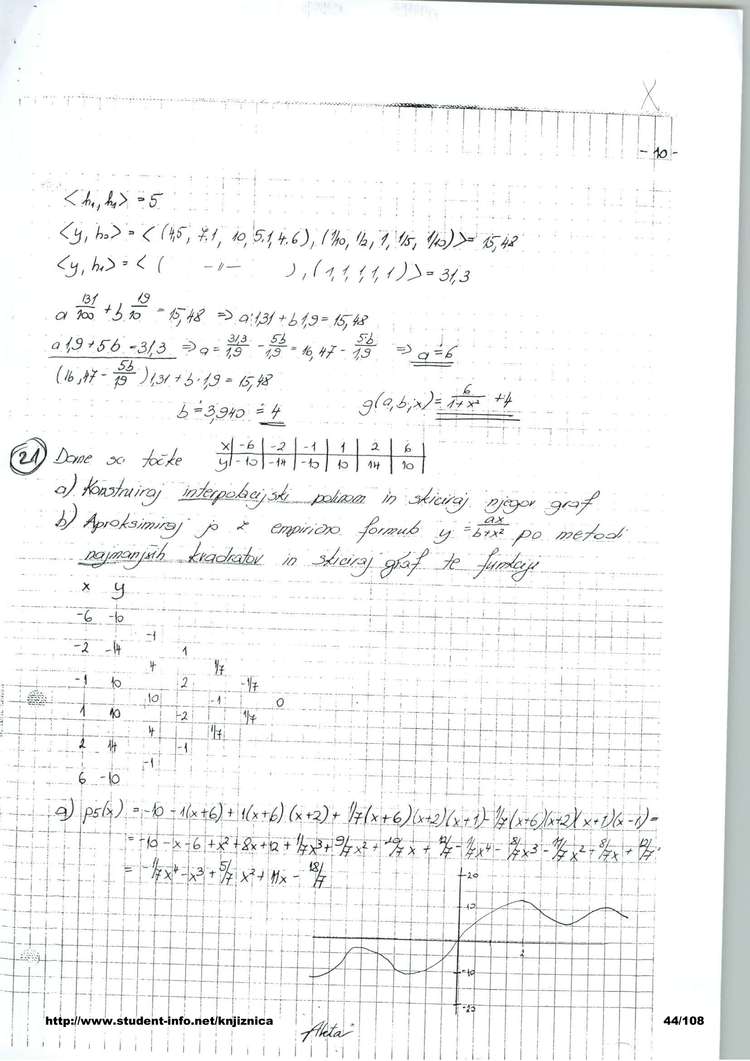 X
- 10 -
<h₁, h₁> = 5
<y, h₀> = < (4,5, 7.1, 10, 5.1, 4.6), (1/10, 1/2, 1, 1/5, 1/10) > = 15,48
<y, h₁> = < ( -"- ), (1, 1, 1, 1, 1) > = 31,3
a 131/100 + b 19/10 = 15,48 => a·1,31 + b 1,9 = 15,48
a 1,9 + 5b = 31,3 => a = 31,3/1,9 - 5b/1,9 = 16,47 - 5b/1,9 => a ≐ 6
(16,47 - 5b/1,9) 1,31 + b·1,9 = 15,48
b ≐ 3,940 ≐ 4 g(a,b;x) = 6/1+x² + 4
21 Dane so točke x | -6 | -2 | -1 | 1 | 2 | 6
y | -10 | -14 | -10 | 10 | 14 | 10
a) Konstruiraj interpolacijski polinom in skiciraj njegov graf
b) Aproksimiraj jo z empirično formulo y = ax/b+x² po metodi
najmanjših kvadratov in skiciraj graf te funkcije
x y
-6 -10
-1
-2 -14 1
4 1/7
-1 10 2 -1/7
10 -1 0
1 10 -2 1/7
4 1/7
2 14 -1
-1
6 -10
a) p5(x) = -10 - 1(x+6) + 1(x+6)(x+2) + 1/7(x+6)(x+2)(x+1) - 1/7(x+6)(x+2)(x+1)(x-1) =
= -10 - x - 6 + x² + 8x + 12 + 1/7x³ + 9/7x² + 20/7x + 12/7 - 1/7x⁴ - 8/7x³ - 11/7x² + 8/7x + 12/7 =
= -1/7x⁴ - x³ + 5/7x² + 11x - 18/7
20
10
2
-10
-20
http://www.student-info.net/knjiznica
44/108